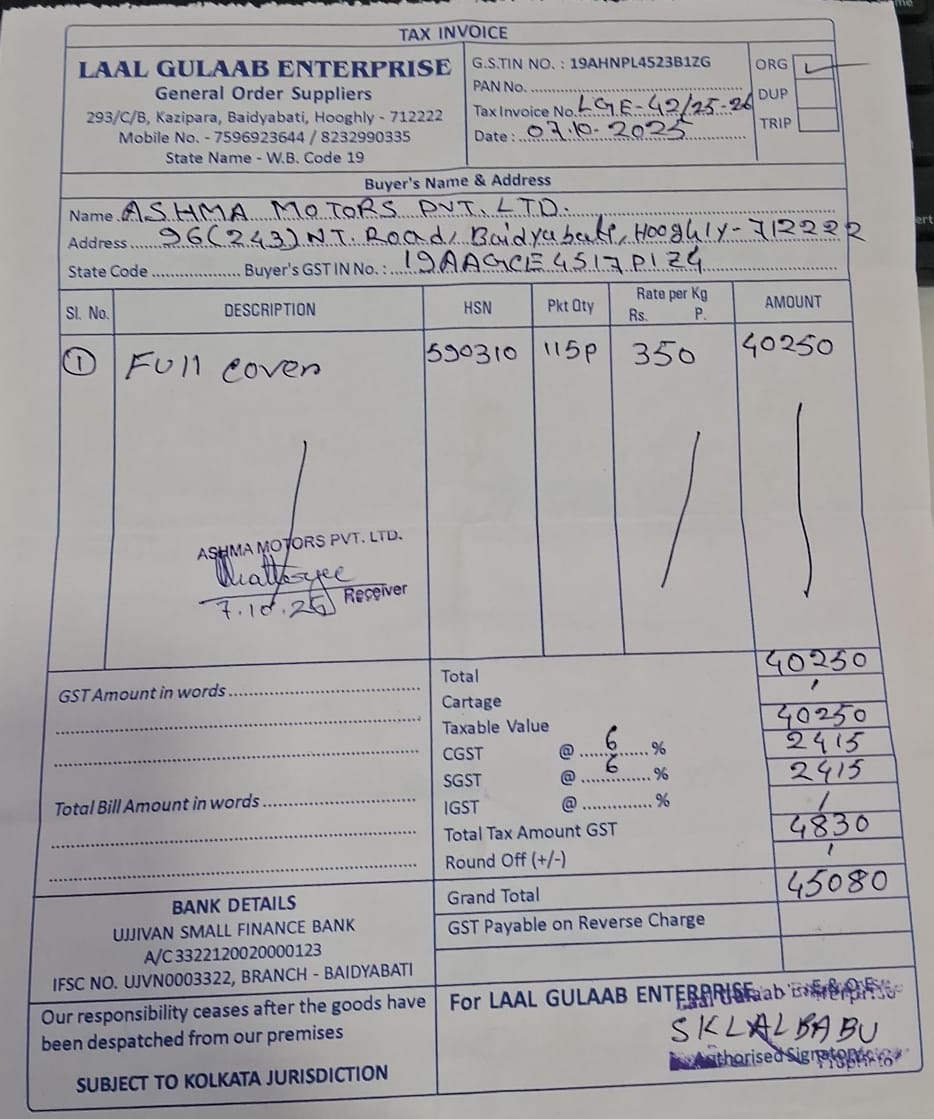 TAX INVOICE
LAAL GULAAB ENTERPRISE
General Order Suppliers
293/C/B, Kazipara, Baidyabati, Hooghly - 712222
Mobile No. - 7596923644 / 8232990335
State Name - W.B. Code 19
G.S.TIN NO. : 19AHNPL4523B1ZG
PAN No.
Tax Invoice No. LGE-42/25-26
Date : 07.10.2025
ORG
DUP
TRIP
Buyer's Name & Address
Name ASHMA MOTORS PVT. LTD.
Address 96(243) N.T. Road, Baidyabati, Hooghly - 712222
State Code Buyer's GST IN No. : 19AAGCE4517P1Z4
Sl. No. DESCRIPTION HSN Pkt Qty Rate per Kg Rs. P. AMOUNT
1 Full Cover 590310 115P 350 40250
ASHMA MOTORS PVT. LTD.
7.10.25 Receiver
GST Amount in words
Total Bill Amount in words
Total 40250
Cartage
Taxable Value 40250
CGST @ 6 % 2415
SGST @ 6 % 2415
IGST @ %
Total Tax Amount GST 4830
Round Off (+/-)
Grand Total 45080
GST Payable on Reverse Charge
BANK DETAILS
UJJIVAN SMALL FINANCE BANK
A/C 3322120020000123
IFSC NO. UJVN0003322, BRANCH - BAIDYABATI
Our responsibility ceases after the goods have
been despatched from our premises
SUBJECT TO KOLKATA JURISDICTION
E.& O.E.
For LAAL GULAAB ENTERPRISE
Laal Gulaab Enterprise
SK LALBABU
Authorised Signatory